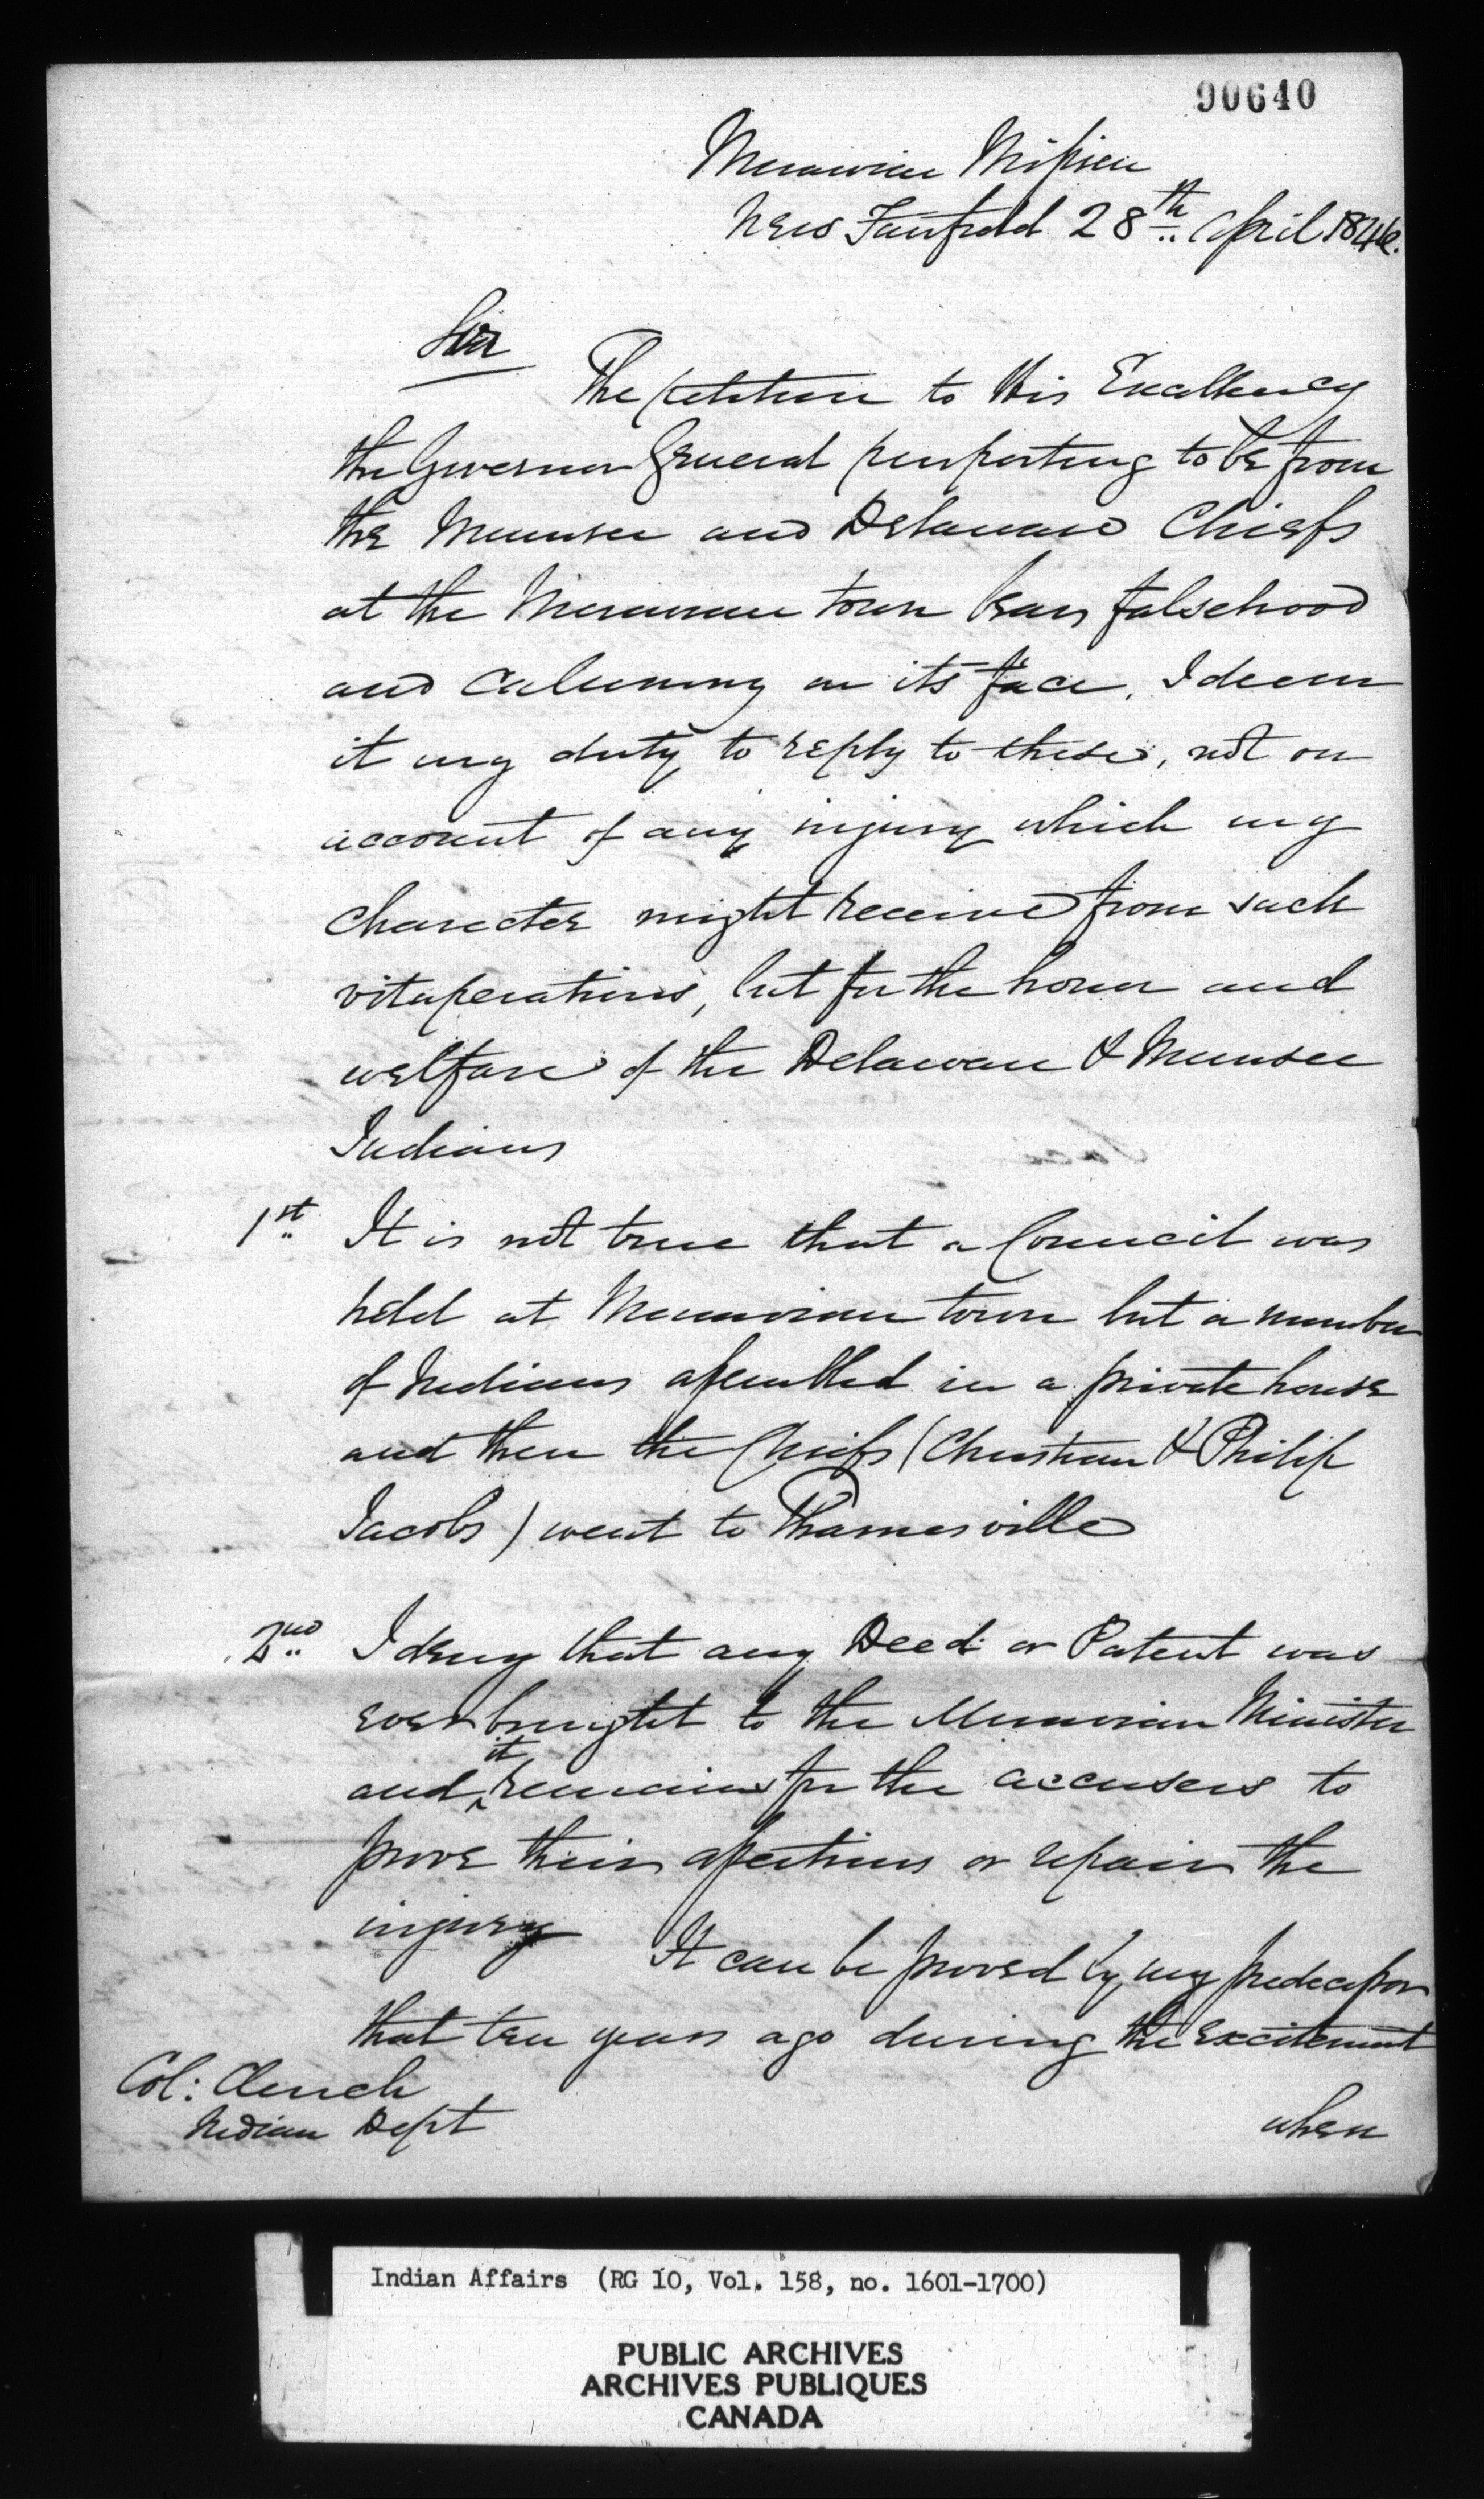 90640
Moravian Mission
New Fairfield 28th April 1846.
Sir
The petition to His Excellency
the Governor General purporting to be from
the Munsee and Delaware Chiefs
at the Moravian town bears falsehood
and calumny on its face, I deem
it my duty to reply to these, not on
account of any injury which my
character might receive from such
vituperations, but for the honor and
welfare of the Delaware & Munsee
Indians
1st It is not true that a Council was
held at Moravian town but a number
of Indians assembled in a private house
and then the Chiefs (Christian & Philip
Jacobs) went to Thamesville
2nd I deny that any Deed or Patent was
ever brought to the Moravian Minister
and it remains for the accusers to
prove their assertions or repair the
injury It can be proved by my predecessor
that ten years ago during the excitement
when
Col: Clench
Indian Dept
Indian Affairs (RG 10, Vol. 158, no. 1601-1700)
PUBLIC ARCHIVES
ARCHIVES PUBLIQUES
CANADA